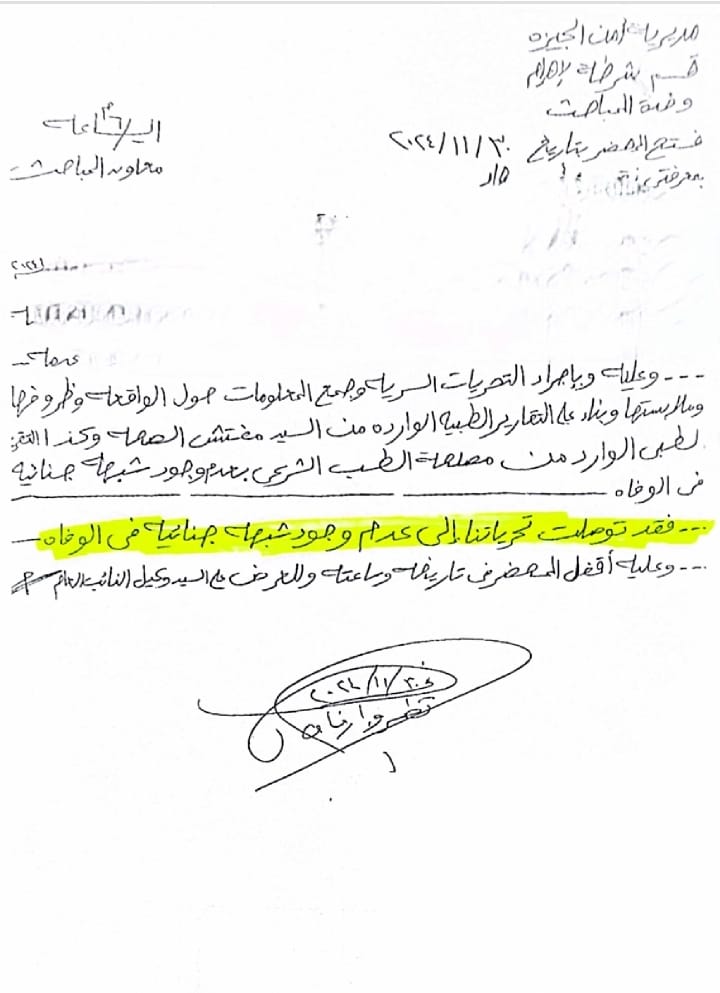 مديرية أمن الجيزه
قسم شرطة الاهرام
وحدة المباحث
فتح المحضر بتاريخ ٢٠٢٤/١١/٣٠ الساعه
بمعرفتى معاون المباحث
--- وعليه وبإجراء التحريات السرية وجمع المعلومات حول الواقعه وظروفها
وملابستها وبناء على التقارير الطبية الوارده من السيد مفتش الصحه وكذا
لطبى الوارد من مصلحة الطب الشرعى بعدم وجود شبهه جنائيه
فى الوفاه
--- فقد توصلت تحرياتنا إلى عدم وجود شبهه جنائيه فى الوفاه
--- وعليه أقفل المحضر فى تاريخه وساعته وللعرض على السيد وكيل النائب العام
٢٠٢٤/١١/٣٠